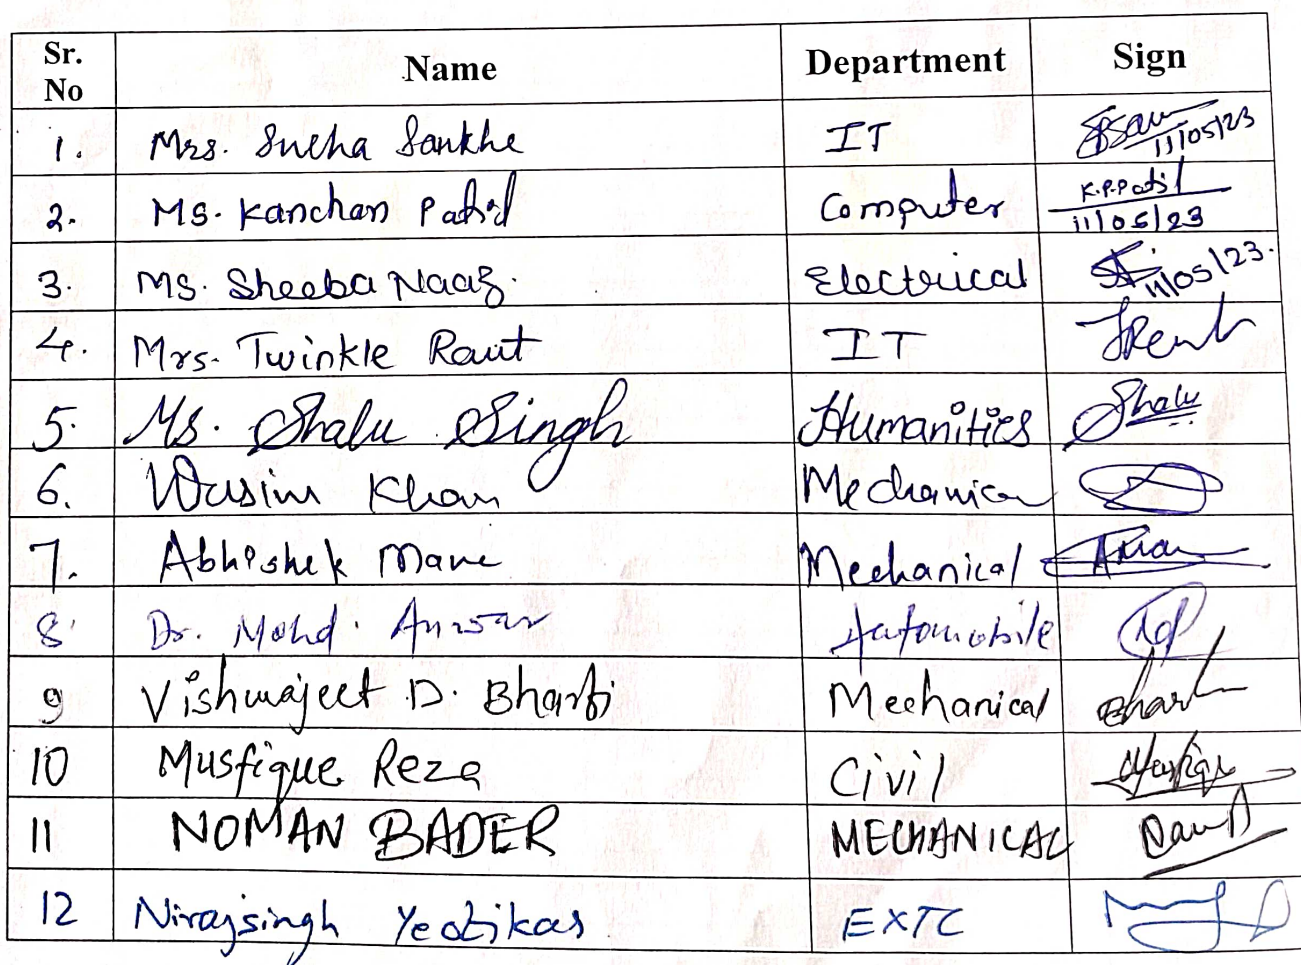 Sr. No Name Department Sign
1. Mrs. Sneha Sankhe IT 11/05/23
2. Ms. Kanchan Patil Computer K.P.Patil 11/05/23
3. Ms. Sheeba Naaz. Electrical 11/05/23.
4. Mrs. Twinkle Raut IT
5. Ms. Shalu Singh Humanities Shalu
6. Wasim Khan Mechanical
7. Abhishek Mane Mechanical
8. Dr. Mohd. Anwar Automobile
9 Vishwajeet D. Bharti Mechanical
10 Musfique Reza Civil
11 NOMAN BADER MECHANICAL
12 Nirajsingh Yeotikar EXTC